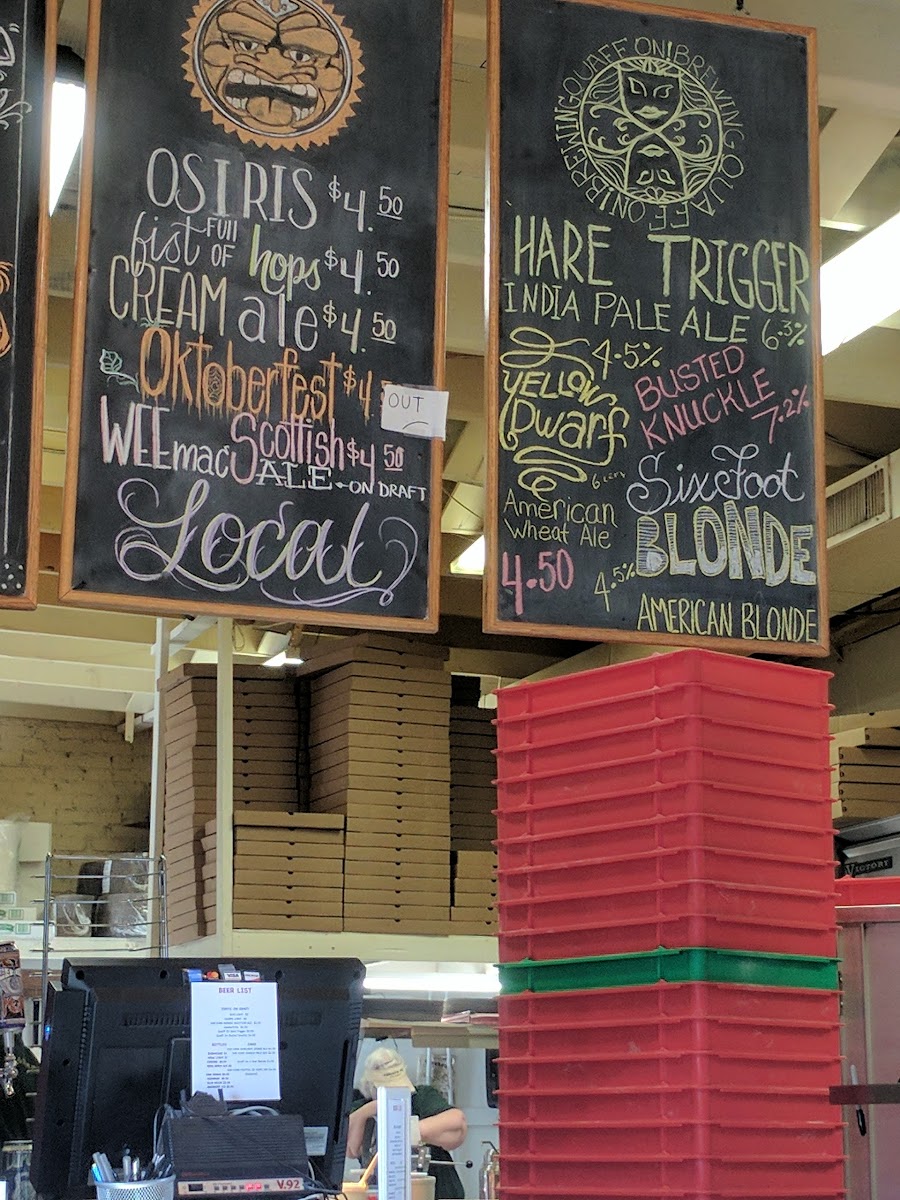 OSIRIS $4.50
fist FULL OF hops $4.50
CREAM ale $4.50
OKToberfest $4.
OUT
WEEmac Scottish $4.50
ALE - ON DRAFT
Local
QUAFF ON! BREWING QUAFF ON! BREWING
HARE TRIGGER
INDIA PALE ALE 6.3%
YELLOW Dwarf 4.5%
American
Wheat Ale
4.50
BUSTED
KNUCKLE
7.2%
Six Foot
BLONDE
4.5%
AMERICAN BLONDE
VICTORY
VISA
BEER LIST
V.92